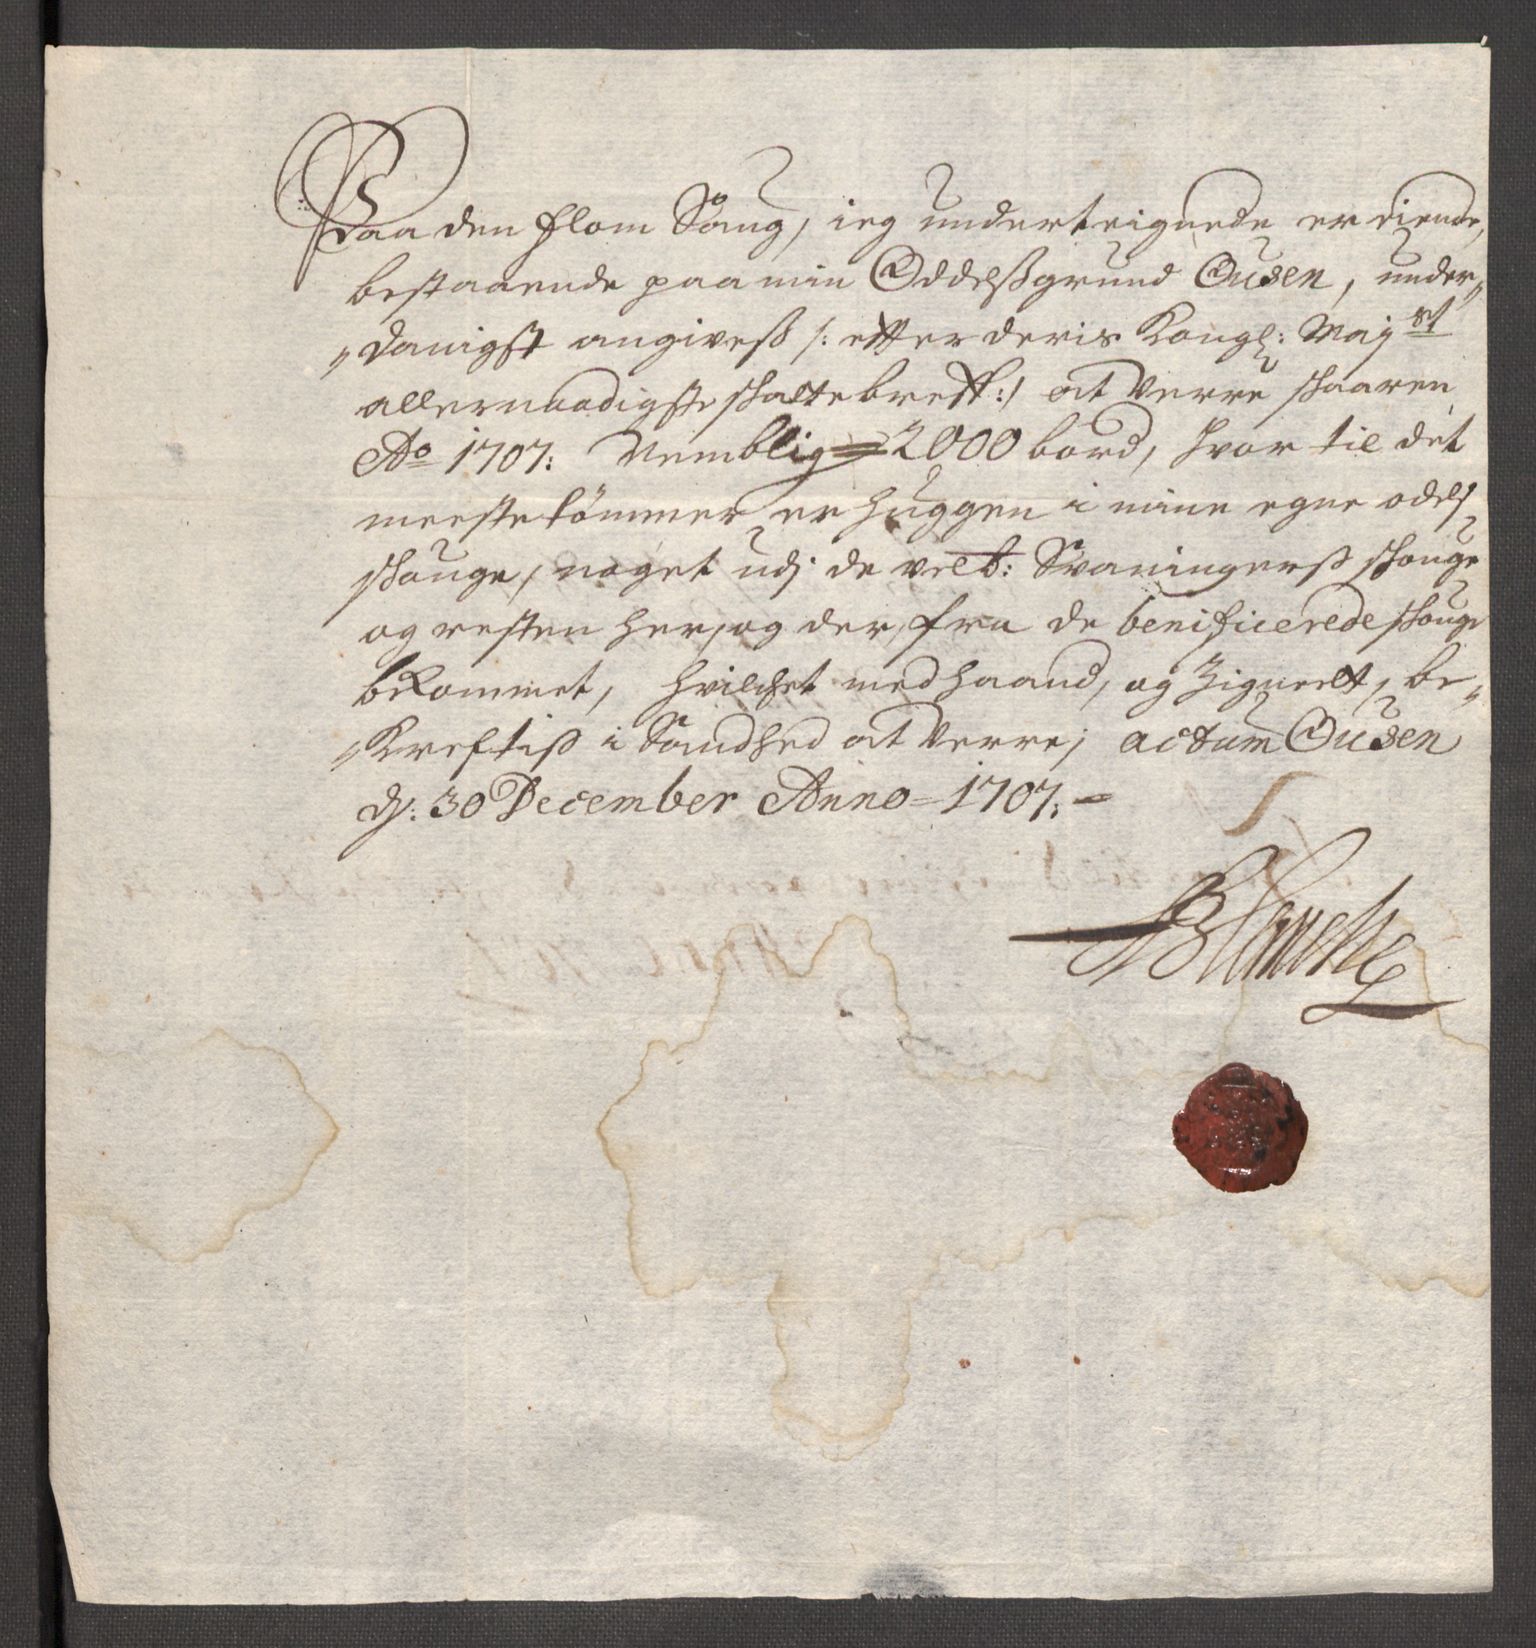 Paa den flom Saug, ieg underteignede er eiende,
bestaaende paa min Oddelßgrund Ousen, under¬
danigst angiveß /: etter deris Kongl: Mayst
allernaadigste skattebreff :/ at Verre skaaren
Ao 1707: Nemblig 2000 bord, hvor til det
meeste tømmer er huggen i mine egne odelß
skouge, noget udj de velb: Svaningerß skouge
og resten her, og der, fra de benificerede skouge
bekommet, hvilchet med haand, og Zignett, be¬
krefftiß i Sandhed at Verre; actum Ousen
d: 30 December Anno 1707: